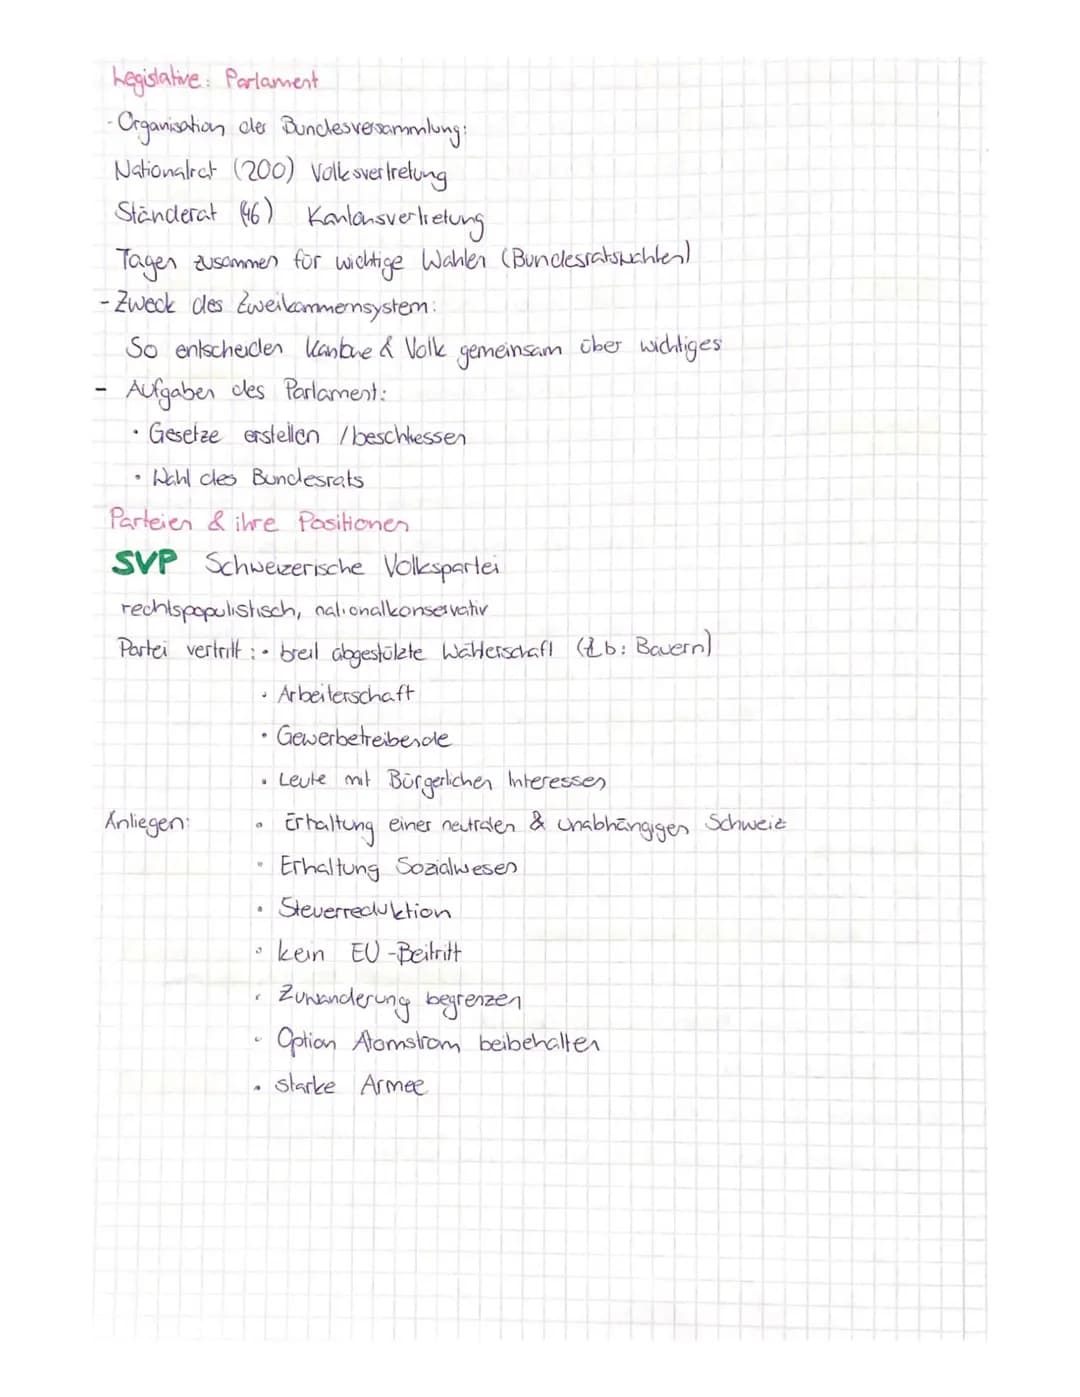 Legislative: Parlament
- Organisation der Bundesversammlung:
Nationalrat (200) Volksvertretung
Ständerat (46) Kantonsvertretung
Tagen zusammen für wichtige Wahlen (Bundesratswahlen)
- Zweck des Zweikammernsystem:
So entscheiden Kantone & Volk gemeinsam über wichtiges
- Aufgaben des Parlament:
• Gesetze erstellen / beschliessen
• Wahl des Bundesrats
Parteien & ihre Positionen
SVP Schweizerische Volkspartei
rechtspopulistisch, nationalkonservativ
Partei vertritt: • breit abgestützte Wählerschaft (Zb: Bauern)
• Arbeiterschaft
• Gewerbetreibende
• Leute mit Bürgerlichen Interessen
Anliegen: • Erhaltung einer neutralen & unabhängigen Schweiz
• Erhaltung Sozialwesen
• Steuerreduktion
• kein EU-Beitritt
• Zuwanderung begrenzen
• Option Atomstrom beibehalten
• starke Armee